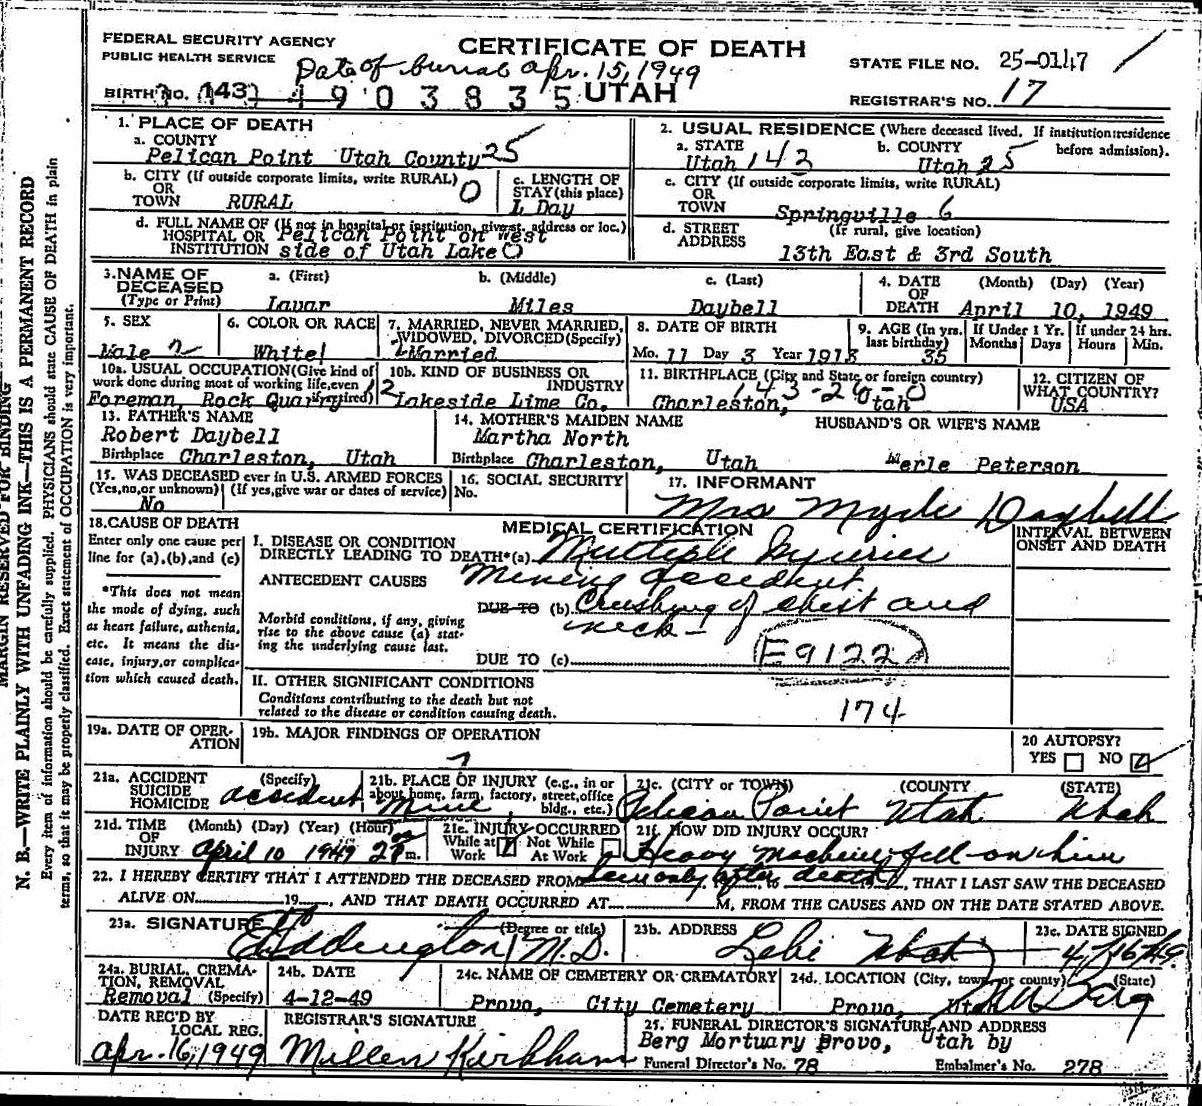 FEDERAL SECURITY AGENCY
PUBLIC HEALTH SERVICE
CERTIFICATE OF DEATH
STATE FILE NO. 25-0147
Date of burial Apr. 15, 1949
BIRTH NO. (143) 4903835 UTAH
REGISTRAR'S NO. 17
1. PLACE OF DEATH
a. COUNTY
Pelican Point Utah County 25
2. USUAL RESIDENCE (Where deceased lived. If institution: residence before admission).
a. STATE
Utah 143
b. COUNTY
Utah 25
b. CITY (If outside corporate limits, write RURAL) 0
OR
TOWN RURAL
c. LENGTH OF
STAY (this place)
1 Day
c. CITY (If outside corporate limits, write RURAL)
OR
TOWN Springville 6
d. FULL NAME OF (If not in hospital or institution, give st. address or loc.)
HOSPITAL OR Pelican Point on West
INSTITUTION side of Utah Lake 0
d. STREET (If rural, give location)
ADDRESS
13th East & 3rd South
3. NAME OF
DECEASED
(Type or Print)
a. (First)
Lavar
b. (Middle)
Miles
c. (Last)
Daybell
4. DATE (Month) (Day) (Year)
OF
DEATH April 10, 1949
5. SEX
Male
6. COLOR OR RACE
White
7. MARRIED, NEVER MARRIED,
WIDOWED, DIVORCED (Specify)
Married
8. DATE OF BIRTH
Mo. 11 Day 3 Year 1913
9. AGE (In yrs. last birthday)
35
If Under 1 Yr.
Months Days
If under 24 hrs.
Hours Min.
10a. USUAL OCCUPATION (Give kind of
work done during most of working life, even
if retired)
Foreman, Rock Quarry
10b. KIND OF BUSINESS OR
INDUSTRY
Lakeside Lime Co,
11. BIRTHPLACE (City and State or foreign country)
143-26-0
Charleston, Utah
12. CITIZEN OF
WHAT COUNTRY?
USA
13. FATHER'S NAME
Robert Daybell
Birthplace Charleston, Utah
14. MOTHER'S MAIDEN NAME
Martha North
Birthplace Charleston, Utah
HUSBAND'S OR WIFE'S NAME
Merle Peterson
15. WAS DECEASED ever in U.S. ARMED FORCES
(Yes, no, or unknown) (If yes, give war or dates of service)
No
16. SOCIAL SECURITY
No.
17. INFORMANT
Mrs Daybell
18. CAUSE OF DEATH
Enter only one cause per
line for (a), (b), and (c)
*This does not mean
the mode of dying, such
as heart failure, asthenia,
etc. It means the dis-
ease, injury, or complica-
tion which caused death.
MEDICAL CERTIFICATION
INTERVAL BETWEEN
ONSET AND DEATH
I. DISEASE OR CONDITION
DIRECTLY LEADING TO DEATH*(a) Multiple Injuries
ANTECEDENT CAUSES Mining accident
DUE TO (b) Crushing of chest and
neck -
Morbid conditions, if any, giving
rise to the above cause (a) stat-
ing the underlying cause last.
DUE TO (c) E9122
II. OTHER SIGNIFICANT CONDITIONS
Conditions contributing to the death but not
related to the disease or condition causing death.
174
19a. DATE OF OPER-
ATION
19b. MAJOR FINDINGS OF OPERATION
20 AUTOPSY?
YES NO
21a. ACCIDENT (Specify)
SUICIDE
HOMICIDE accident
21b. PLACE OF INJURY (e.g., in or
about home, farm, factory, street, office
bldg., etc.) Mine
21c. (CITY OR TOWN) (COUNTY (STATE)
Pelican Point Utah Utah
21d. TIME (Month) (Day) (Year) (Hour)
OF
INJURY April 10 1949 2 P m.
21e. INJURY OCCURRED
While at Work Not While At Work
21f. HOW DID INJURY OCCUR?
Heavy machinery fell on him
22. I HEREBY CERTIFY THAT I ATTENDED THE DECEASED FROM Seen only after death, THAT I LAST SAW THE DECEASED
ALIVE ON 19, AND THAT DEATH OCCURRED AT M, FROM THE CAUSES AND ON THE DATE STATED ABOVE.
23a. SIGNATURE (Degree or title)
Eddington M.D.
23b. ADDRESS
Lehi Utah
23c. DATE SIGNED
4/16/49
24a. BURIAL, CREMA-
TION, REMOVAL
Removal (Specify)
24b. DATE
4-12-49
24c. NAME OF CEMETERY OR CREMATORY
Provo, City Cemetery
24d. LOCATION (City, town, or county) (State)
Provo, Utah
DATE REC'D BY
LOCAL REG.
Apr. 16, 1949
REGISTRAR'S SIGNATURE
Millen Kirkham
25. FUNERAL DIRECTOR'S SIGNATURE AND ADDRESS
Berg Mortuary Provo, Utah by
Berg
Funeral Director's No. 78
Embalmer's No. 278
MARGIN RESERVED FOR BINDING
N. B.—WRITE PLAINLY WITH UNFADING INK—THIS IS A PERMANENT RECORD
Every item of information should be carefully supplied. PHYSICIANS should state CAUSE OF DEATH in plain
terms, so that it may be properly classified. Exact statement of OCCUPATION is very important.